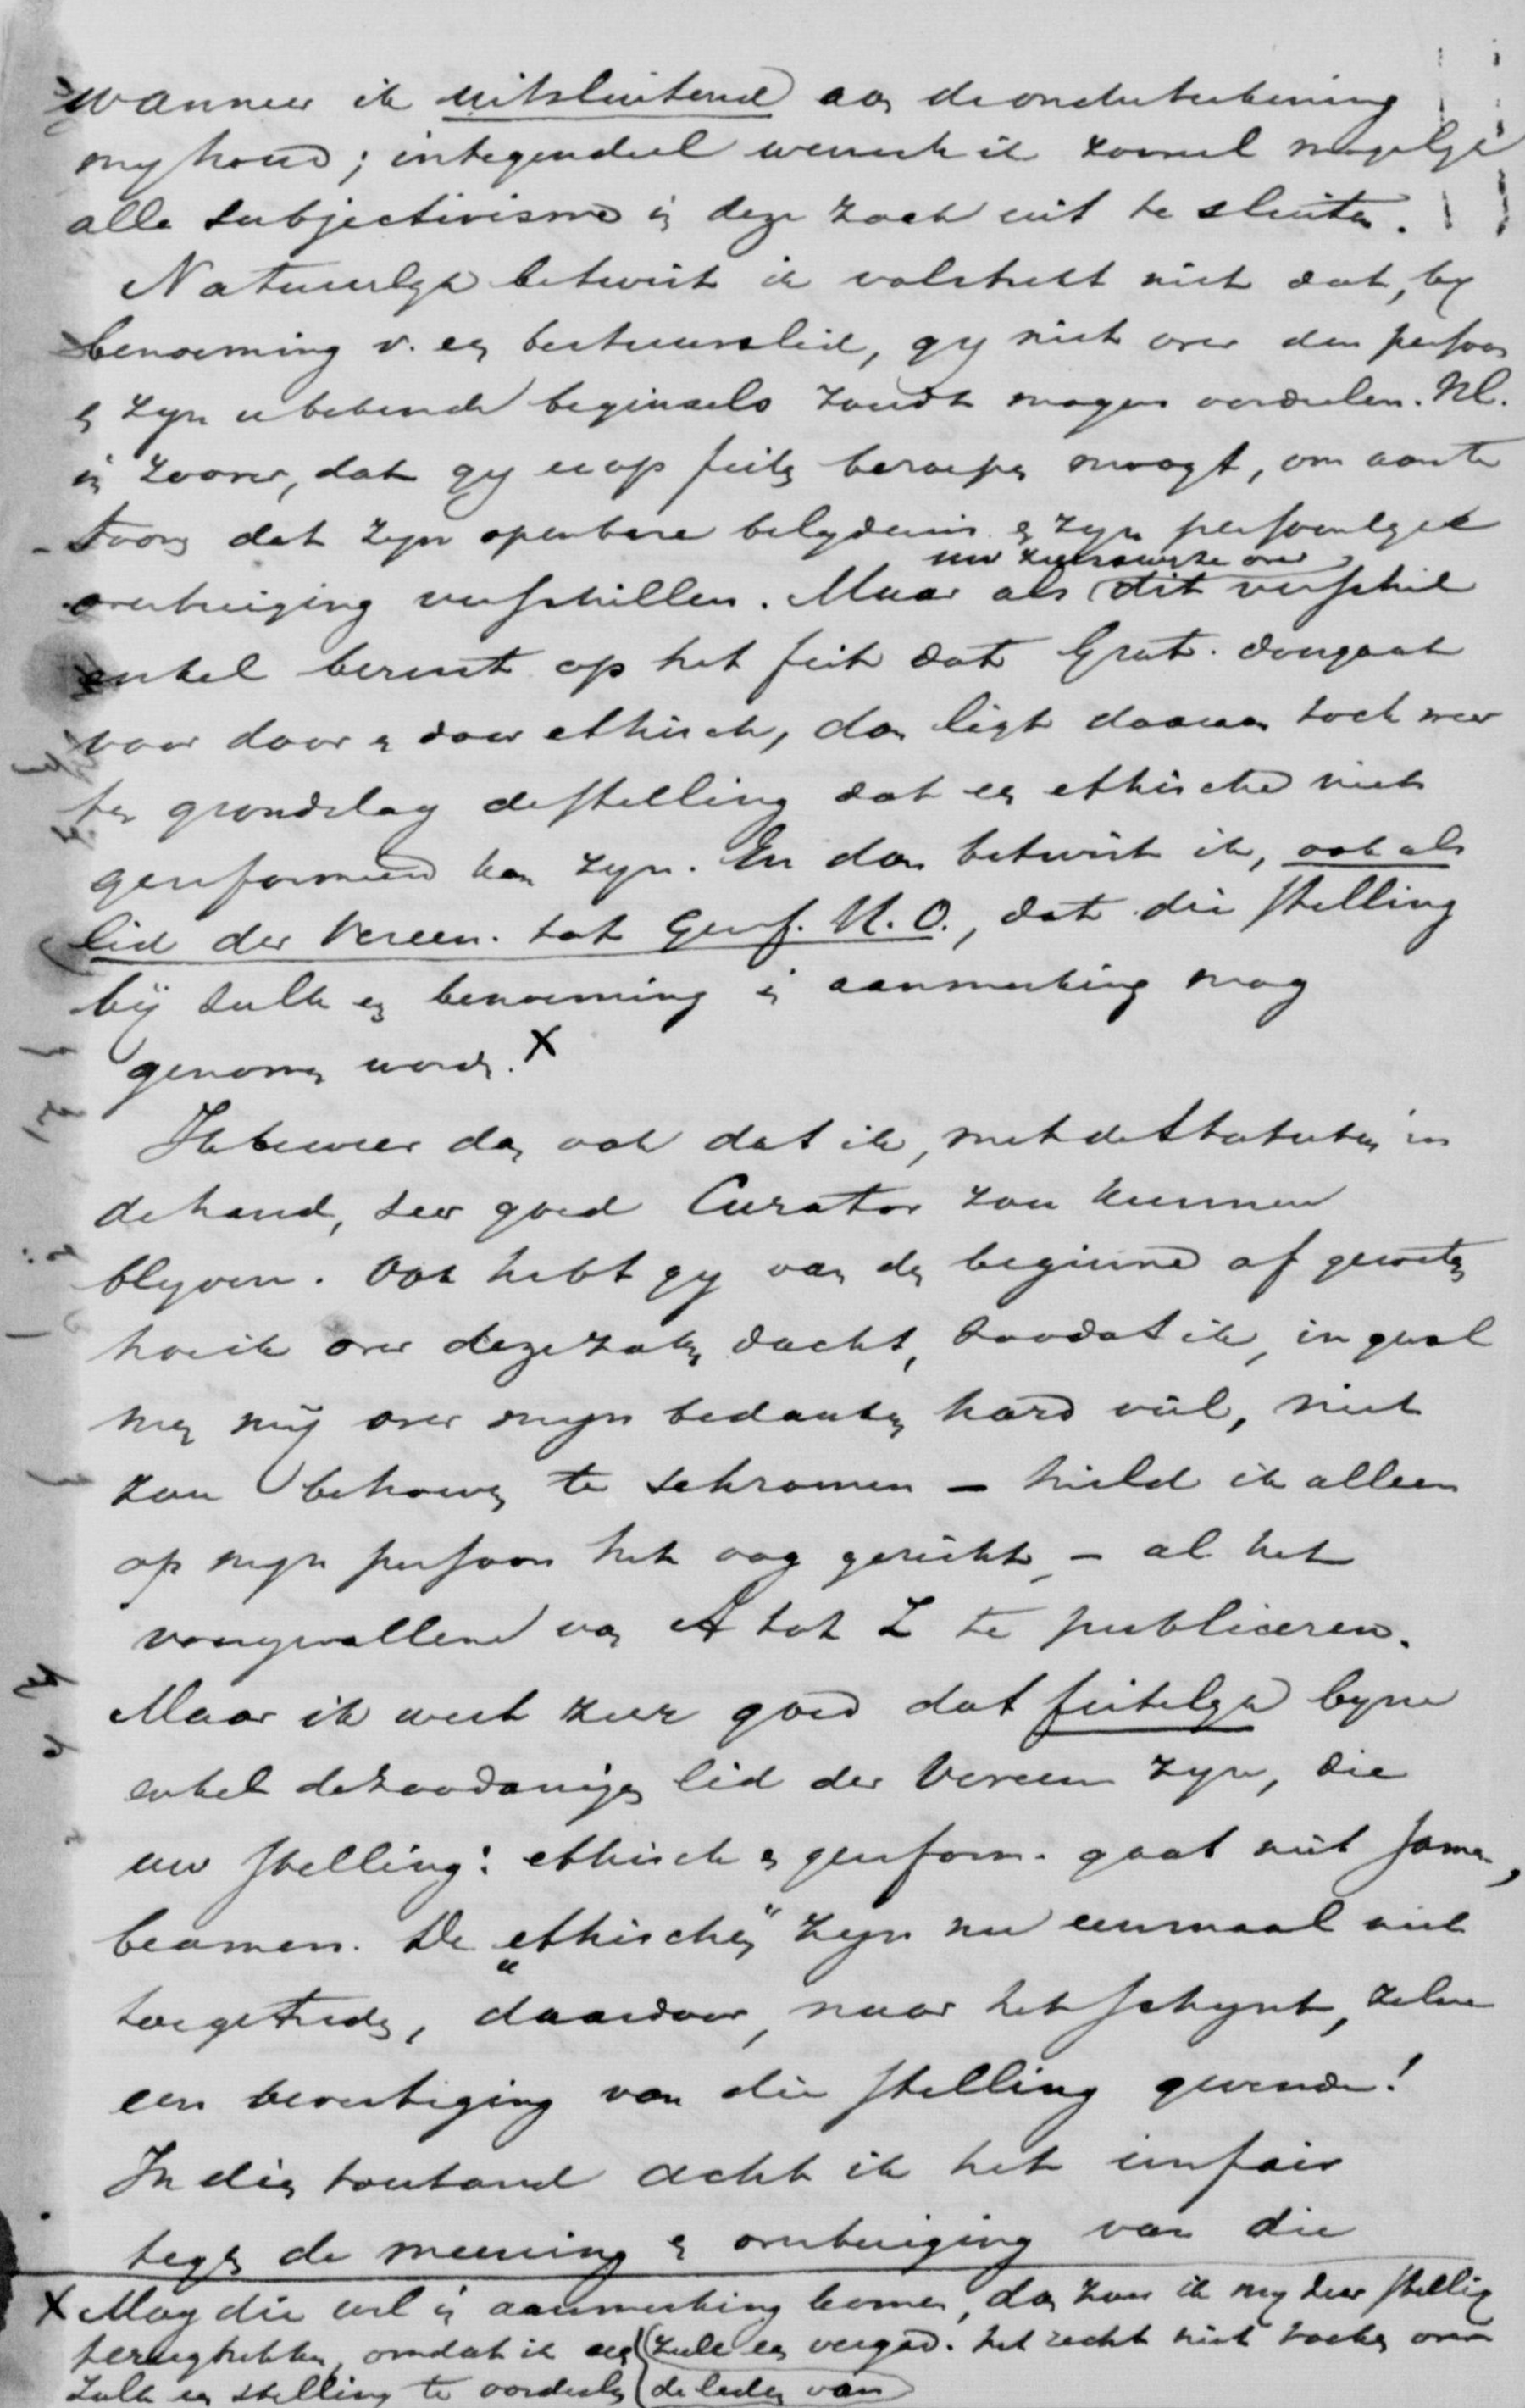 wanneer ik uitsluitend aan de onderteekening
my houd; integendeel wensch ik zooveel mogelyk
alle subjectivisme in deze zaak uit te sluiten.
Natuurlyk betwist ik volstrekt niet dat, by
benoeming v. een bestuurslid, gy niet over den persoon
en zyn u bekende beginsels zoudt mogen oordeelen. Nl.
in zoover, dat gy u op feiten beroepen moogt, om aan te
toonen dat zyn openbare belydenis en zyn persoonlyke
overtuiging verschillen. Maar als uw zienswyze over dit verschil
enkel berust op het feit dat Grat. doorgaat
voor door en door ethisch, dan ligt daaraan toch weer
ten grondslag de stelling dat een ethische niet
gereformeerd kan zyn. En dan betwist ik, ook als
lid der Vereen. tot Geref. H. O., dat die stelling
bij zulk een benoeming in aanmerking mag
genomen worden. X
Ik beweer dan ook dat ik, met de Statuten in
de hand, zeer goed Curator zou kunnen
blyven. Ook hebt gy van den beginne af geweten
hoe ik over deze zaken dacht, zoodat ik, ingeval
men mij over myn bedanken hard viel, niet
zou behoeven te schromen – hield ik alleen
op myn persoon het oog gericht, – al het
voorgevallene van A tot Z te publiceeren.
Maar ik weet zeer goed dat feitelyk byna
enkel dezoodanigen lid der Vereen zyn, die
uw stelling: ethisch en gereform. gaat niet samen,
beamen. De "ethischen" zyn nu eenmaal niet
toegetreden, daardoor, naar het schynt, zelve
een bevestiging van die stelling gevende!
In dien toestand acht ik het unfair
tegen de meening en overtuiging van die
X Mag die wel in aanmerking komen, dan zou ik my zeer stellig
terugtrekken, omdat ik aan de leden van zulk een vergad. het recht niet toeken over
zulk een stelling te oordeelen